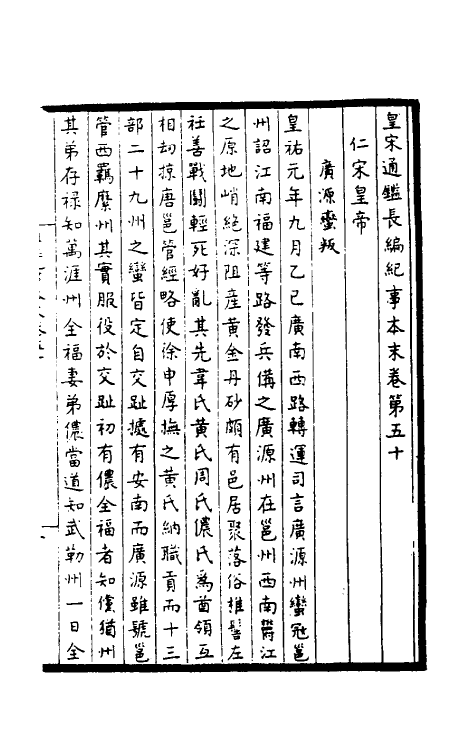 皇宋通鑑長編紀事本末卷第五十
仁宋皇帝
廣源蠻叛
皇祐元年九月乙巳廣南西路轉運司言廣源州蠻冦邕
州詔江南福建等路發兵備之廣源州在邕州西南欝江
之原地峭絶深阻產黄金丹砂頗有邑居聚落俗椎髻左
衽善戰鬪輕死好亂其先韋氏黄氏周氏儂氏為酋領互
相刧掠唐邕管經略使徐申厚撫之黄氏納職貢而十三
部二十九州之蠻皆定自交趾據有安南而廣源雖號邕
管西羈縻州其實服役於交趾初有儂全福者知儻猶州
其弟存禄知萬涯州全福妻弟儂當道知武勒州一日全